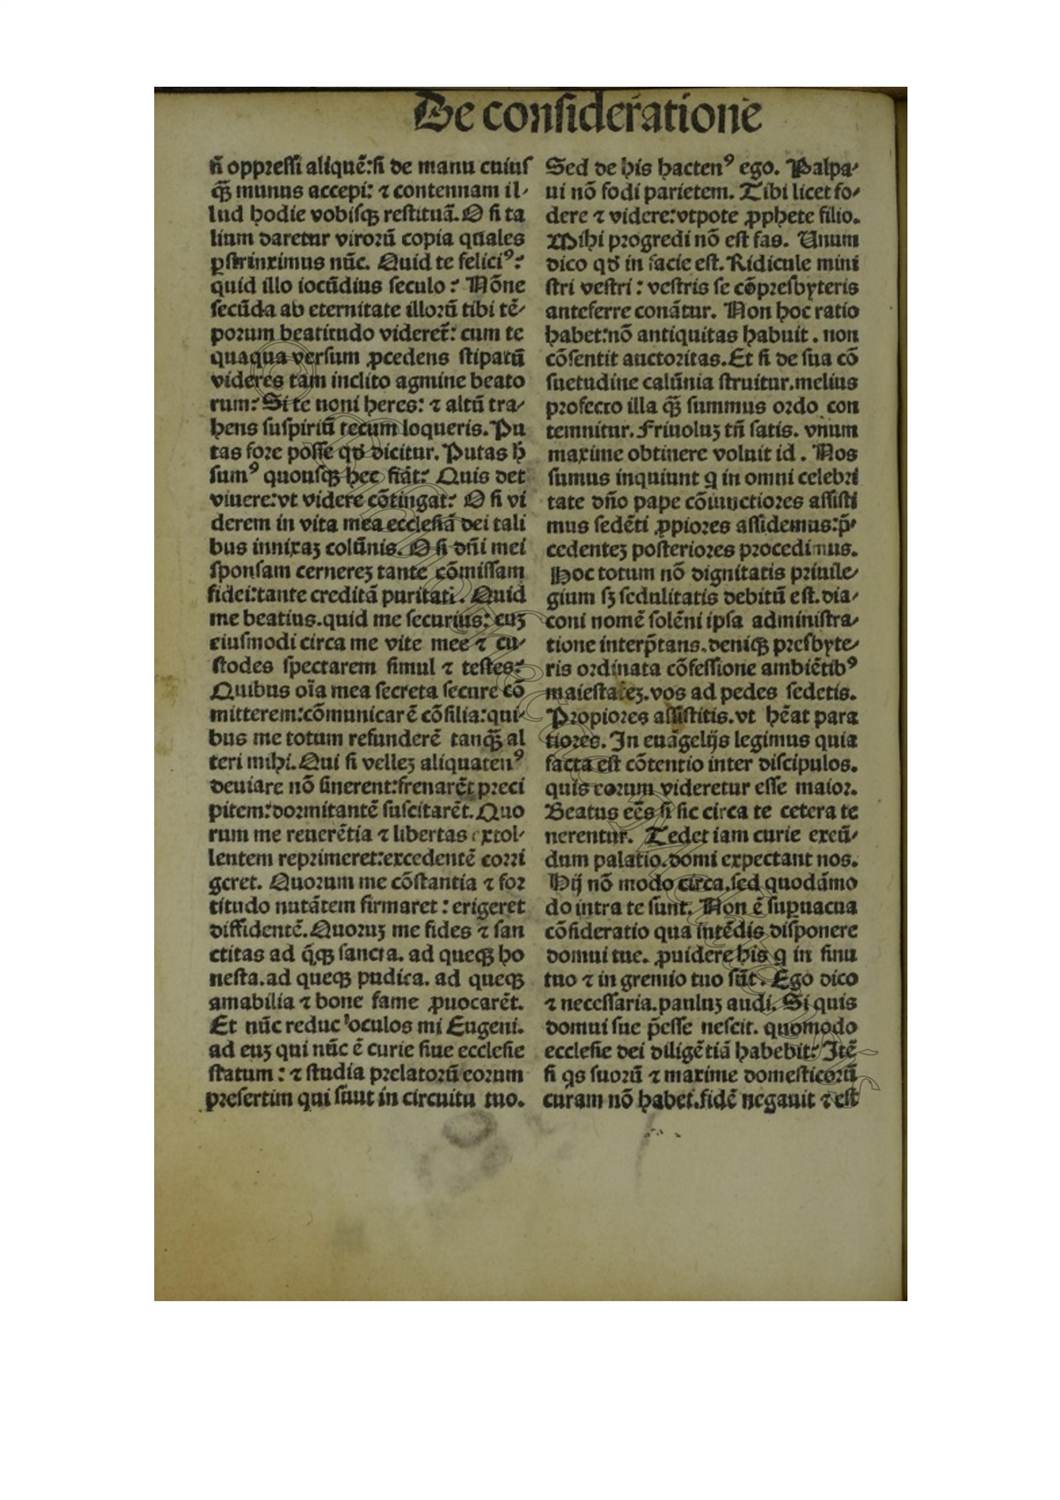 De consideratione
n̄ oppressi aliquē:si de manu cuius
q̄ꝫ munus accepi: ⁊ contennam il⸗
lud hodie vobisqꝫ restituā. O si ta
lium daretur virorū copia quales
ꝑstrinximus nūc. Quid te feliciꝰ:
quid illo iocūdius seculo: Nōne
secūda ab eternitate illorū tibi tē⸗
porum beatitudo videret̄: cum te
quaqua versum ꝓcedens stipatū
videres tam inclito agmine beato
rum: Si te noni heres: ⁊ altū tra⸗
hens suspiriū tecum loqueris. Pu
tas fore posse qđ dicitur. Putas h̄
sumꝰ quousqꝫ hec fiāt: Quis det
viuere:vt videre cōtingat: O si vi
derem in vita mea ecclesiā dei tali
bus innixaꝫ colūnis. O si dn̄i mei
sponsam cernereꝫ tante cōmissam
fidei:tante creditā puritati. Quid
me beatius.quid me securius: cuꝫ
eiusmodi circa me vite mee ⁊ cu⸗
stodes spectarem simul ⁊ testes:
Quibus oīa mea secreta secure cō
mitterem:cōmunicarē cōsilia:qui⸗
bus me totum refunderē tanq̄ꝫ al
teri mihi. Qui si velleꝫ aliquatenꝰ
deuiare nō sinerent:frenarēt preci
pitem:dormitantē suscitarēt. Quo
rum me reuerētia ⁊ libertas extol⸗
lentem reprimeret:excedentē corri
geret. Quorum me cōstantia ⁊ for
titudo nutātem firmaret: erigeret
diffidentē. Quoruꝫ me fides ⁊ san
ctitas ad q̄qꝫ sancta. ad queqꝫ ho
nesta.ad queqꝫ pudica. ad queqꝫ
amabilia ⁊ bone fame ꝓuocarēt.
Et nūc reduc oculos mi Eugeni.
ad euꝫ qui nūc ē curie siue ecclesie
statum: ⁊ studia prelatorū eorum
presertim qui sunt in circuitu tuo.
Sed de his hactenꝰ ego. Palpa⸗
ui nō fodi parietem. Tibi licet fo⸗
dere ⁊ videre:vtpote ꝓphete filio.
Mihi progredi nō est fas. Unum
dico qđ in facie est. Ridicule mini
stri vestri: vestris se cōpresbyteris
anteferre conātur. Non hoc ratio
habet:nō antiquitas habuit. non
cōsentit auctoritas. Et si de sua cō
suetudine calūnia struitur.melius
profecto illa q̄ꝫ summus ordo con
temnitur. Friuoluꝫ tn̄ satis. vnum
maxime obtinere voluit id. Nos
sumus inquiunt q in omni celebri
tate dn̄o pape cōiunctiores assisti
mus sedēti ꝓpiores assidemus:p̄⸗
cedenteꝫ posteriores procedimus.
Hoc totum nō dignitatis priuile⸗
gium sꝫ sedulitatis debitū est.dia⸗
coni nomē solēni ipsa administra⸗
tione interp̄tans.deniqꝫ presbyte⸗
ris ordinata cōfessione ambiētibꝰ
maiestateꝫ.vos ad pedes sedetis.
Propiores assistitis.vt hēat para
tiores. In euāgelijs legimus quia
facta est cōtentio inter discipulos.
quis eorum videretur esse maior.
Beatus eēs si sic circa te cetera te
nerentur. Tedet iam curie exeū⸗
dum palatio.domi expectant nos.
Hij nō modo circa.sed quodāmo
do intra te sunt. Non ē suꝑuacua
cōsideratio qua intēdis disponere
domui tue. ꝓuidere his q in sinu
tuo ⁊ in gremio tuo sūt. Ego dico
⁊ necessaria.pauluꝫ audi. Si quis
domui sue p̄esse nescit. quomodo
ecclesie dei diligētiā habebit: Itē
si qs suorū ⁊ maxime domesticorū
curam nō habet.fidē negauit ⁊ est